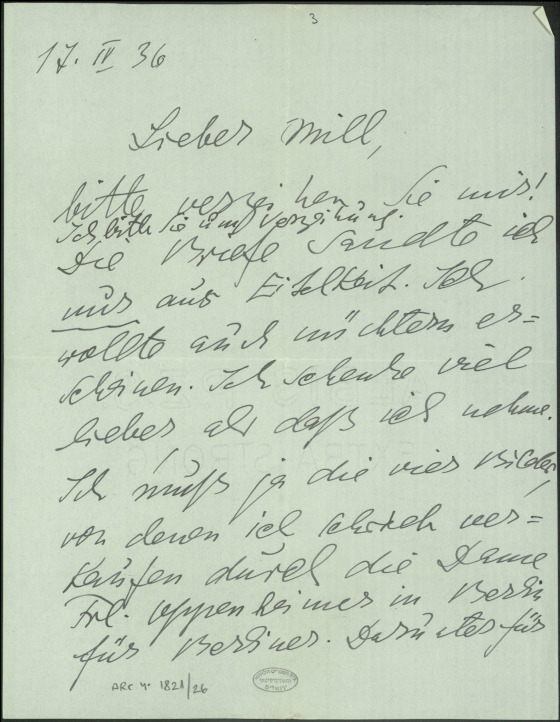 3
17. IV 36
Lieber Mill,
bitte verzeihen Sie mir!
Ich bitte Sie um Verzeihung.
Die Briefe sandte ich
nur aus Eitelkeit. Ich
wollte auch nüchtern er=
scheinen. Ich schenke viel
lieber als daß ich nehme.
Ich muß ja die vier Bilder,
von denen ich schrieb ver=
kaufen durch die Dame
Frl. Oppenheimer in Berlin
für Berliner. Darunter für
ARC 4° 1821/26